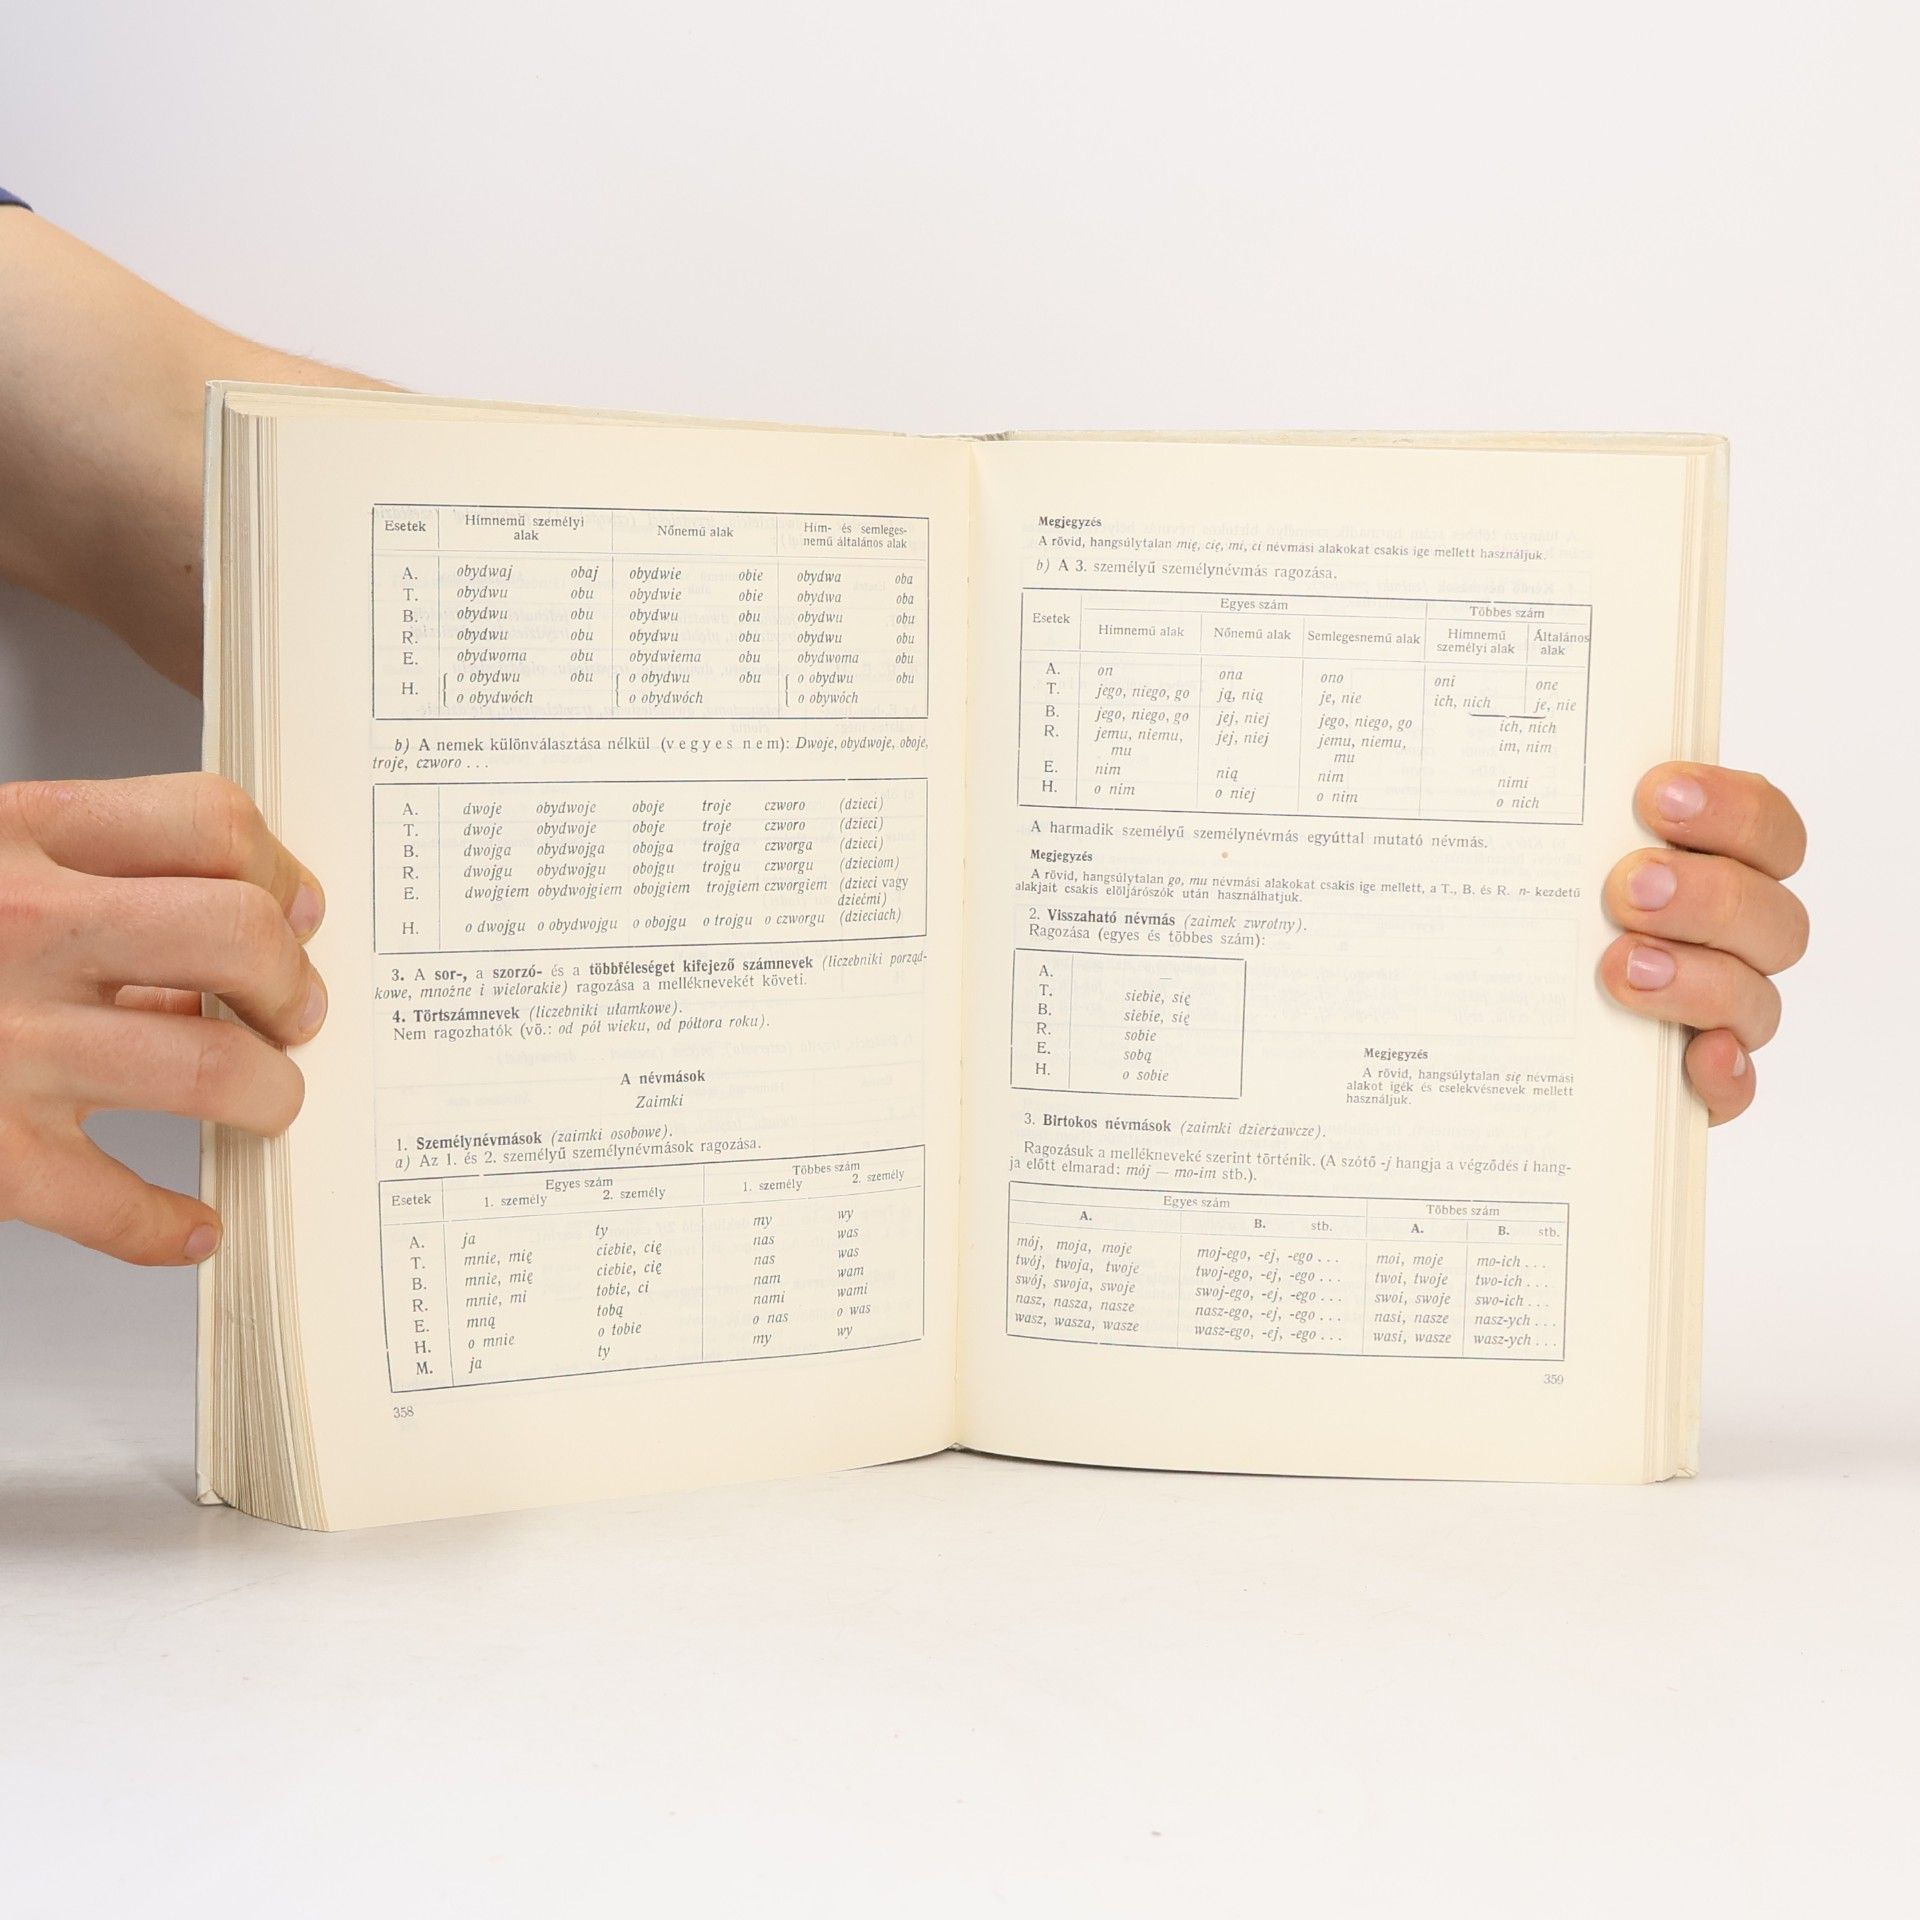 Esetek Hímnemű személyi alak Nőnemű alak Hím- és semleges-nemű általános alak
A. obydwaj obaj obydwie obie obydwa oba
T. obydwu obu obydwie obie obydwa oba
B. obydwu obu obydwu obu obydwu obu
R. obydwu obu obydwu obu obydwu obu
E. obydwoma obu obydwiema obu obydwoma obu
H. o obydwu obu o obydwu obu o obydwu obu
o obydwóch o obydwóch o obywóch
b) A nemek különválasztása nélkül (vegyes nem): Dwoje, obydwoje, oboje,
troje, czworo ...
A. dwoje obydwoje oboje troje czworo (dzieci)
T. dwoje obydwoje oboje troje czworo (dzieci)
B. dwojga obydwojga obojga trojga czworga (dzieci)
R. dwojgu obydwojgu obojgu trojgu czworgu (dzieciom)
E. dwojgiem obydwojgiem obojgiem trojgiem czworgiem (dzieci vagy
dziećmi)
H. o dwojgu o obydwojgu o obojgu o trojgu o czworgu (dzieciach)
3. A sor-, a szorzó- és a többféleséget kifejező számnevek (liczebniki porząd-
kowe, mnożne i wielorakie) ragozása a melléknevekét követi.
4. Törtszámnevek (liczebniki ułamkowe).
Nem ragozhatók (vö.: od pół wieku, od półtora roku).
A névmások
Zaimki
1. Személynévmások (zaimki osobowe).
a) Az 1. és 2. személyű személynévmások ragozása.
Esetek Egyes szám Többes szám
1. személy 2. személy 1. személy 2. személy
A. ja ty my wy
T. mnie, mię ciebie, cię nas was
B. mnie, mię ciebie, cię nas was
R. mnie, mi tobie, ci nam wam
E. mną tobą nami wami
H. o mnie o tobie o nas o was
M. ja ty my wy
358
Megjegyzés
A rövid, hangsúlytalan mię, cię, mi, ci névmási alakokat csakis ige mellett használjuk.
b) A 3. személyű személynévmás ragozása.
Esetek Egyes szám Többes szám
Hímnemű alak Nőnemű alak Semlegesnemű alak Hímnemű személyi alak Általános alak
A. on ona ono oni one
T. jego, niego, go ją, nią je, nie ich, nich je, nie
B. jego, niego, go jej, niej jego, niego, go ich, nich
R. jemu, niemu, jej, niej jemu, niemu, im, nim
mu mu
E. nim nią nim nimi
H. o nim o niej o nim o nich
A harmadik személyű személynévmás egyúttal mutató névmás.
Megjegyzés
A rövid, hangsúlytalan go, mu névmási alakokat csakis ige mellett, a T., B. és R. n- kezdetű
alakjait csakis elöljárószók után használhatjuk.
2. Visszaható névmás (zaimek zwrotny).
Ragozása (egyes és többes szám):
A. —
T. siebie, się
B. siebie, się
R. sobie
E. sobą
H. o sobie
Megjegyzés
A rövid, hangsúlytalan się névmási
alakot igék és cselekvésnevek mellett
használjuk.
3. Birtokos névmások (zaimki dzierżawcze).
Ragozásuk a mellékneveké szerint történik. (A szótő -j hangja a végződés i hang-
ja előtt elmarad: mój — mo-im stb.).
Egyes szám Többes szám
A. B. stb. A. B. stb.
mój, moja, moje moj-ego, -ej, -ego ... moi, moje mo-ich ...
twój, twoja, twoje twoj-ego, -ej, -ego ... twoi, twoje two-ich ...
swój, swoja, swoje swoj-ego, -ej, -ego ... swoi, swoje swo-ich ...
nasz, nasza, nasze nasz-ego, -ej, -ego ... nasi, nasze nasz-ych ...
wasz, wasza, wasze wasz-ego, -ej, -ego ... wasi, wasze wasz-ych ...
359